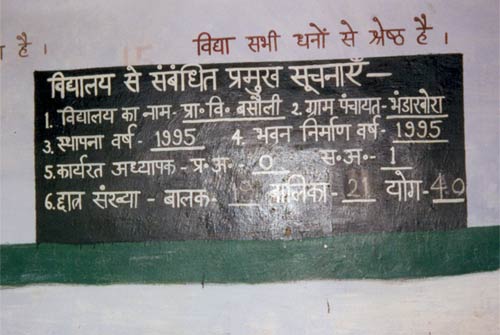 है ।
विद्या सभी धनों से श्रेष्ठ है ।
विद्यालय से संबंधित प्रमुख सूचनाएँ —
1. विद्यालय का नाम - प्रा॰ वि॰ बसौली 2. ग्राम पंचायत - भंडारबोरा
3. स्थापना वर्ष - 1995 4. भवन निर्माण वर्ष - 1995
5. कार्यरत अध्यापक - प्र॰ अ॰ - 0 स॰ अ॰ - 1
6. छात्र संख्या - बालक - 19 बालिका - 21 योग - 40